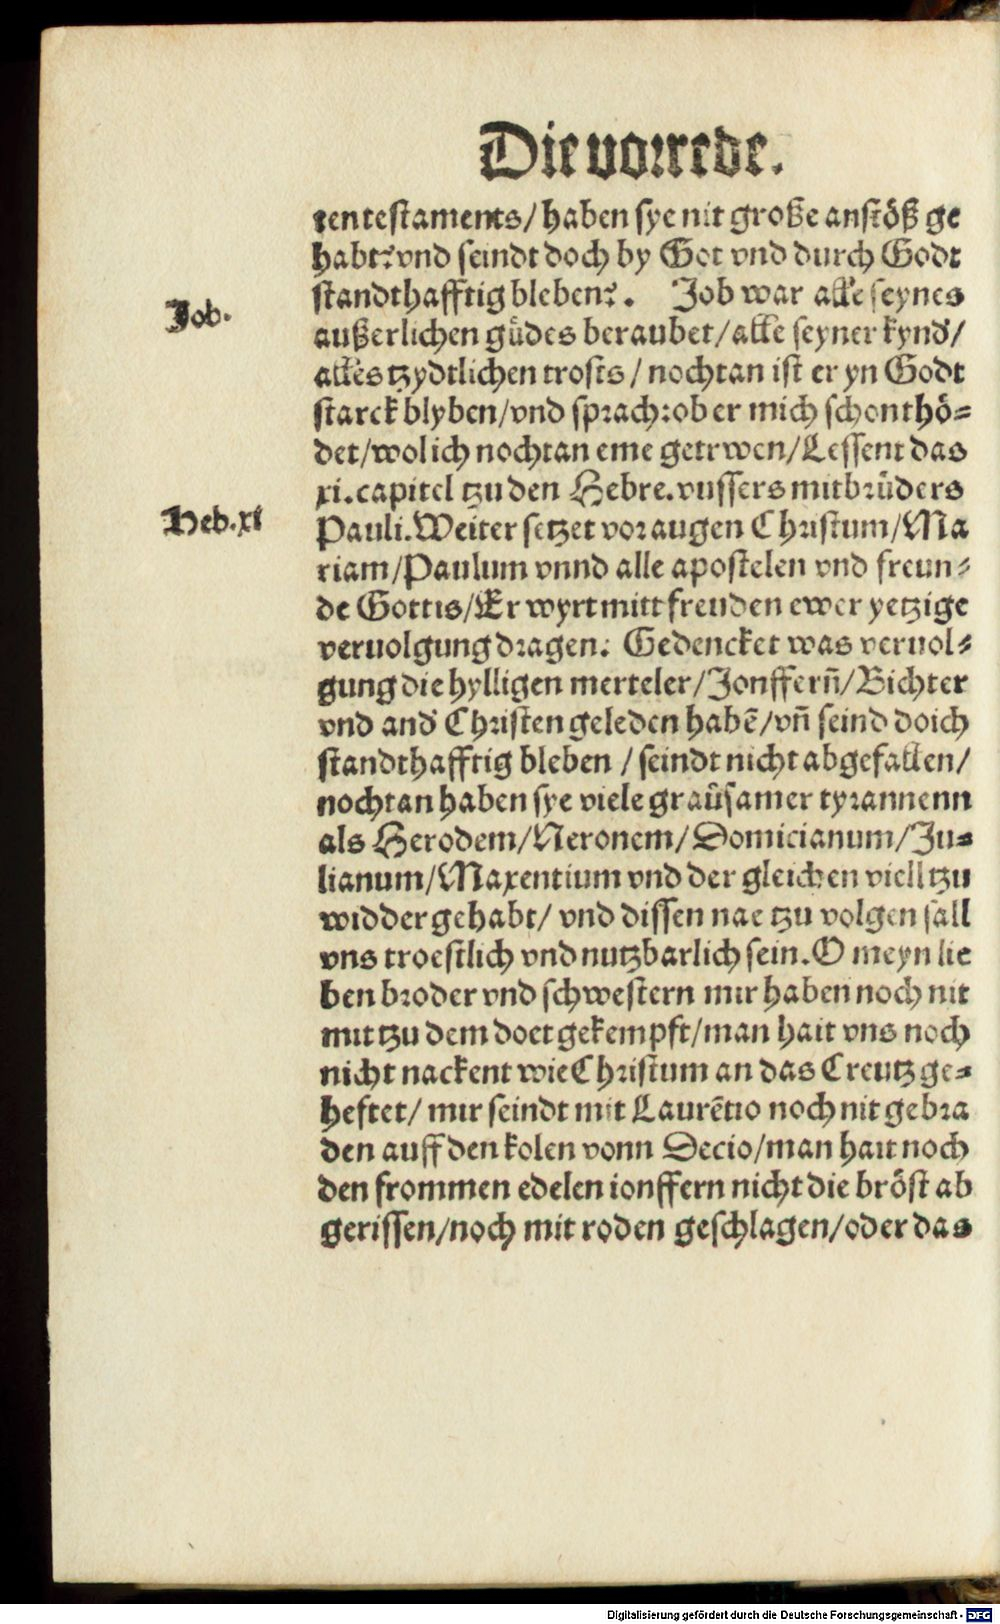 Die vorrede.
ten testaments/ haben sye nit große anstöß ge
habt? vnd seindt doch by Got vnd durch Godt
standthafftig bleben?. Job war alle seynes
Job.
außerlichen gůdes beraubet/ alle seyner kynd'/
alles tzydtlichen trosts / nochtan ist er yn Godt
starck blyben/ vnd sprach: ob er mich schon thö-
det/ wol ich nochtan eme getrwen/ Lessent das
xi. capitel tzu den Hebre. vnssers mitbrůders
Heb. xi
Pauli. Weiter setzet vor augen Christum/ Ma
riam/ Paulum vnnd alle apostelen vnd freun-
de Gottis/ Er wyrt mitt freuden ewer yetzige
veruolgung dragen: Gedencket was veruol-
gung die hylligen merteler/ Jonffern̄/ Bichter
vnd and' Christen geleden habē/ vn̄ seind doich
standthafftig bleben / seindt nicht abgefallen/
nochtan haben sye viele graůsamer tyrannenn
als Herodem/ Neronem/ Domicianum/ Ju-
lianum/ Maxentium vnd der gleichen viell tzu
widder gehabt/ vnd dissen nae tzu volgen sall
vns troestlich vnd nutzbarlich sein. O meyn lie
ben broder vnd schwestern mir haben noch nit
mit tzu dem doet gekempft/ man hait vns noch
nicht nackent wie Christum an das Creutz ge-
heftet/ mir seindt mit Laurētio noch nit gebra
den auff den kolen vonn Decio/ man hait noch
den frommen edelen ionffern nicht die bröst ab
gerissen/ noch mit roden geschlagen/ oder das
Digitalisierung gefördert durch die Deutsche Forschungsgemeinschaft - DFG